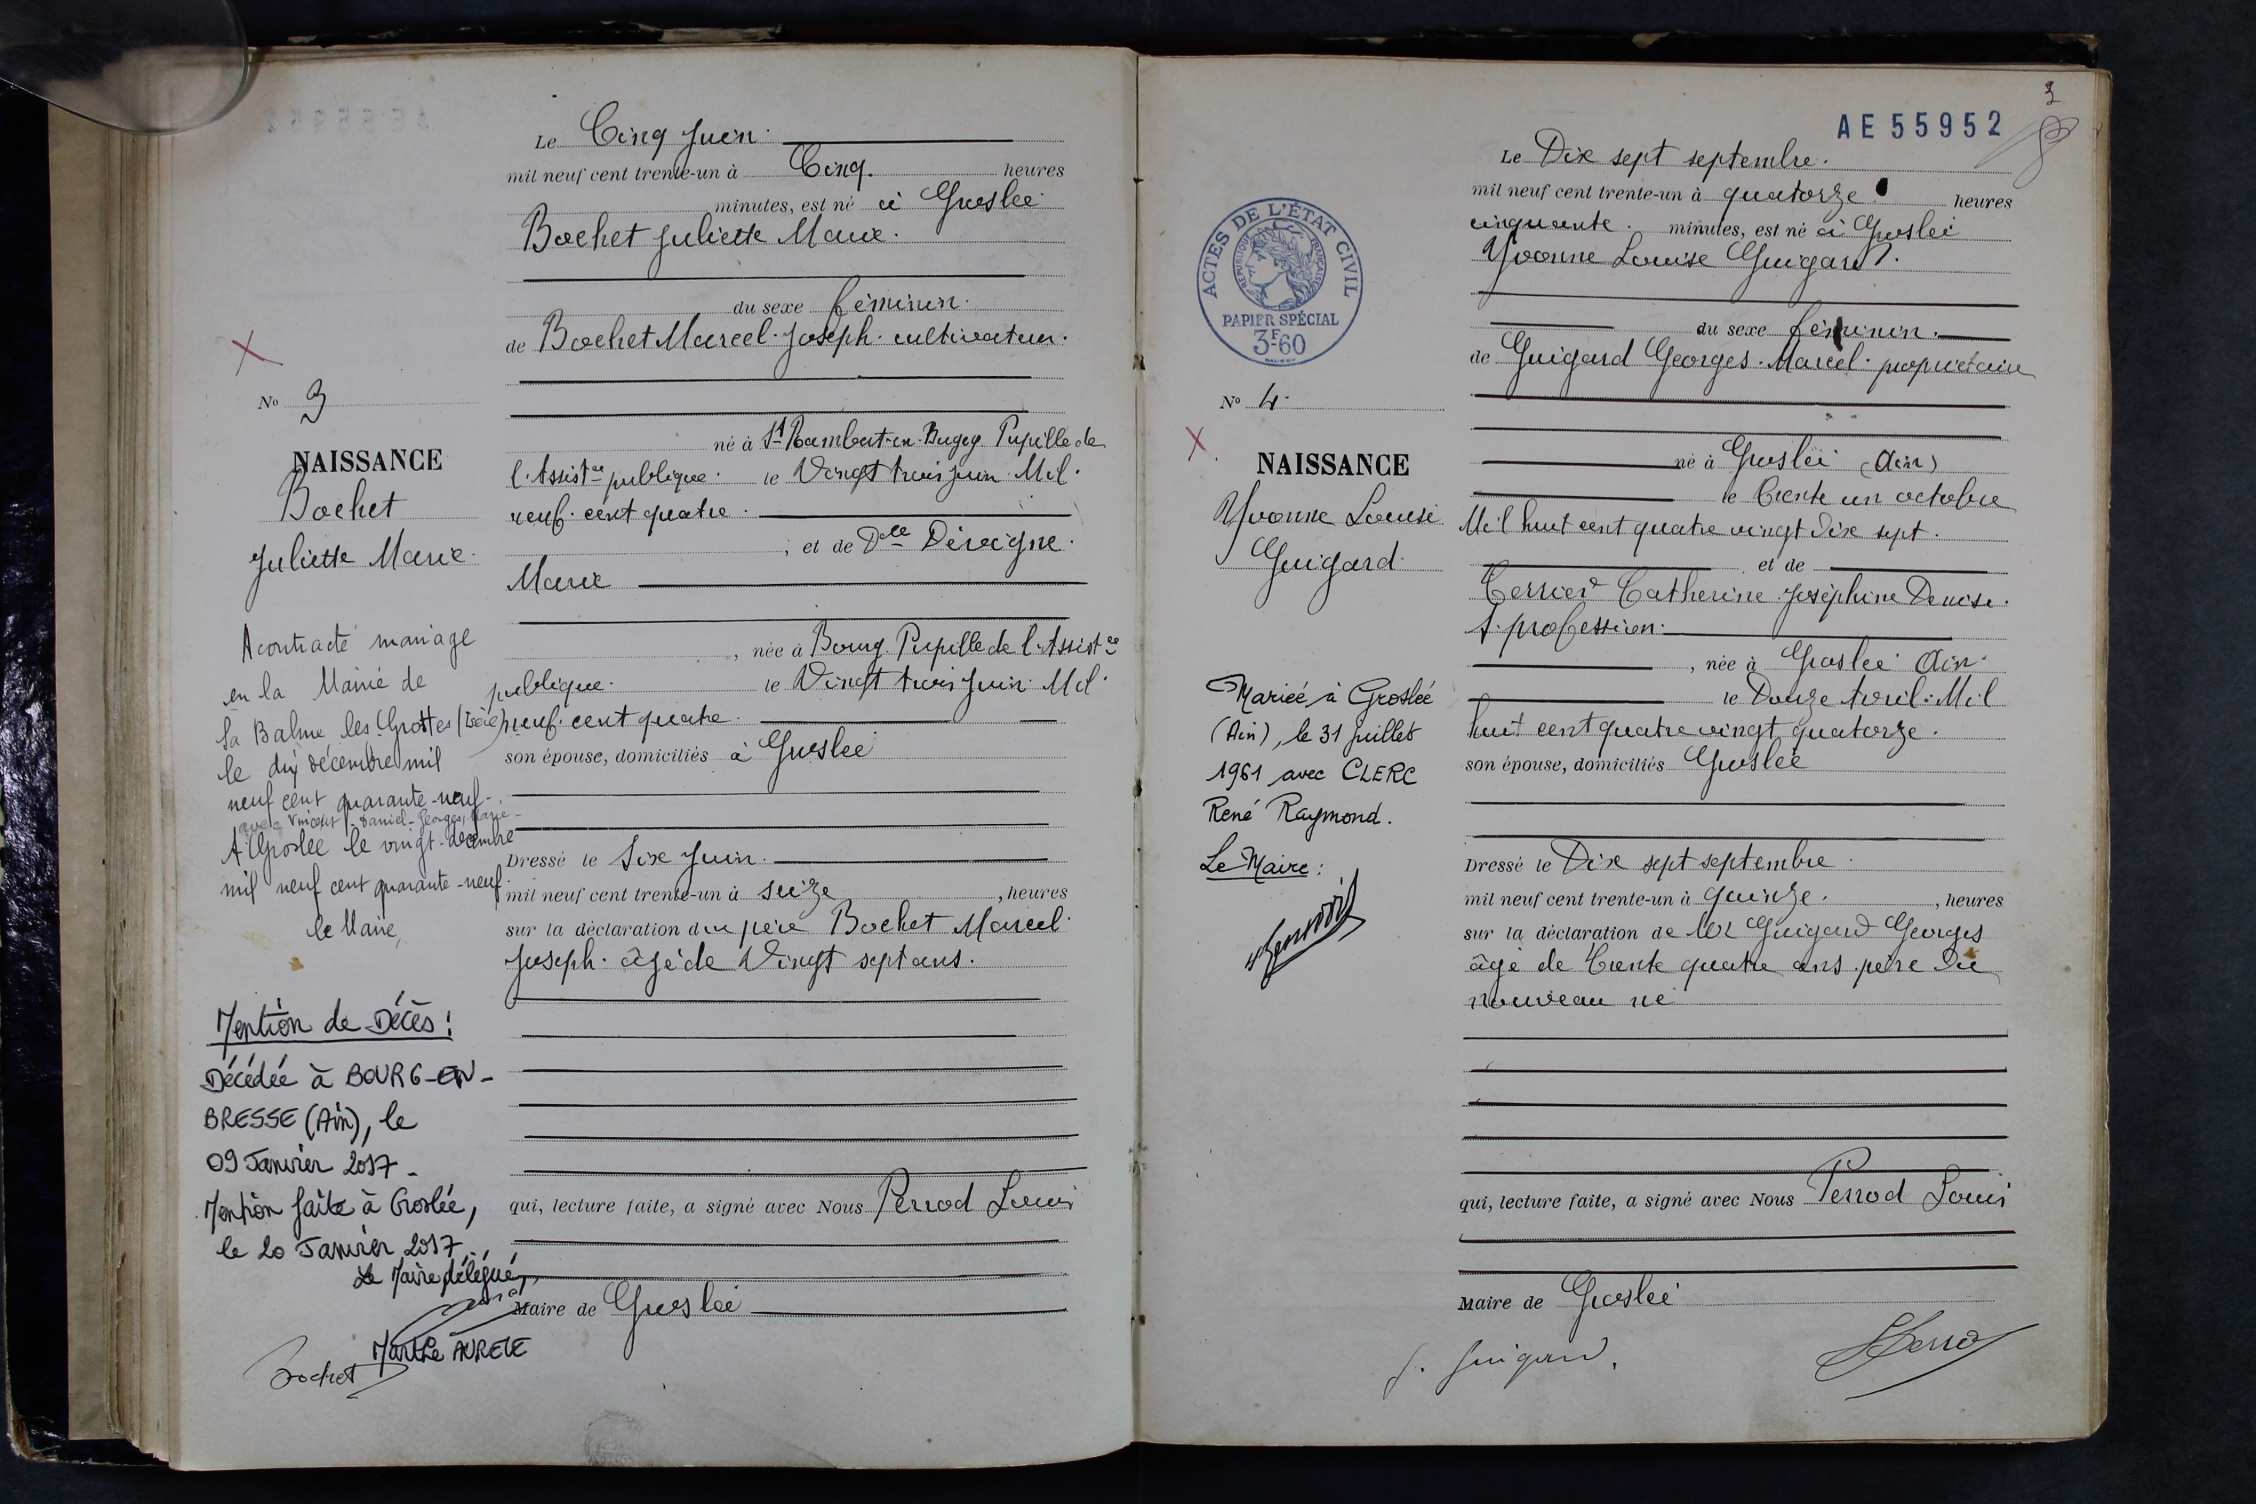 Le Cinq juin.
mil neuf cent trente-un à Cinq. heures
minutes, est né à Groslée
Bochet Juliette Marie.
du sexe féminin.
de Bochet Marcel. Joseph. cultivateur.
né à St Rambert-en-Bugey Pupille de
l'Assistce publique. le Vingt trois juin Mil.
neuf. cent quatre.
, et de Delle
Marie
, née à Bourg. Pupille de l'Assistce
publique. le Vingt trois juin Mil.
neuf. cent quatre.
son épouse, domiciliés à Groslée
Dressé le Six juin.
mil neuf cent trente-un à seize, heures
sur la déclaration du père Bochet Marcel
Joseph. âgé de Vingt sept ans.
qui, lecture faite, a signé avec Nous Perrod Louis
Maire de Groslée
No 3
NAISSANCE
Bochet
Juliette Marie.
A contracté mariage
en la Mairie de
La Balme les Grottes (Isère)
le dix décembre mil
neuf cent quarante-neuf.
avec Vincent Daniel-Georges, Marie-
A Groslée le vingt-décembre
mil neuf cent quarante-neuf.
le Maire,
Mention de Décès:
Décédée à BOURG-EN-
BRESSE (Ain), le
09 Janvier 2017-
Mention faite à Groslée,
le 20 Janvier 2017.
Le Maire délégué,
Marthe AURELE
Bochet
3
AE 55952
Le Dix sept septembre.
mil neuf cent trente-un à quatorze heures
cinquante. minutes, est né à Groslée
Yvonne Louise Guigard.
du sexe féminin.
de Guigard Georges. Marcel. propriétaire
né à Groslée (Ain)
le Trente un octobre
Mil huit cent quatre vingt dix sept.
et de
Terrier Catherine. Joséphine Denise.
s. profession.
, née à Groslée Ain.
le Douze Avril. Mil
huit cent quatre vingt quatorze.
son épouse, domiciliés Groslée
Dressé le Dix sept septembre.
mil neuf cent trente-un à quinze., heures
sur la déclaration de Mr Guigard Georges
âgé de Trente quatre ans. père du
nouveau né
qui, lecture faite, a signé avec Nous Perrod Louis
Maire de Groslée
G. Guigard.
ACTES DE L'ÉTAT CIVIL
RÉPUBLIQUE FRANÇAISE
PAPIER SPÉCIAL
3F60
No 4.
NAISSANCE
Yvonne Louise
Guigard.
Mariée à Groslée
(Ain), le 31 juillet
1961 avec CLERC
René Raymond.
Le Maire: